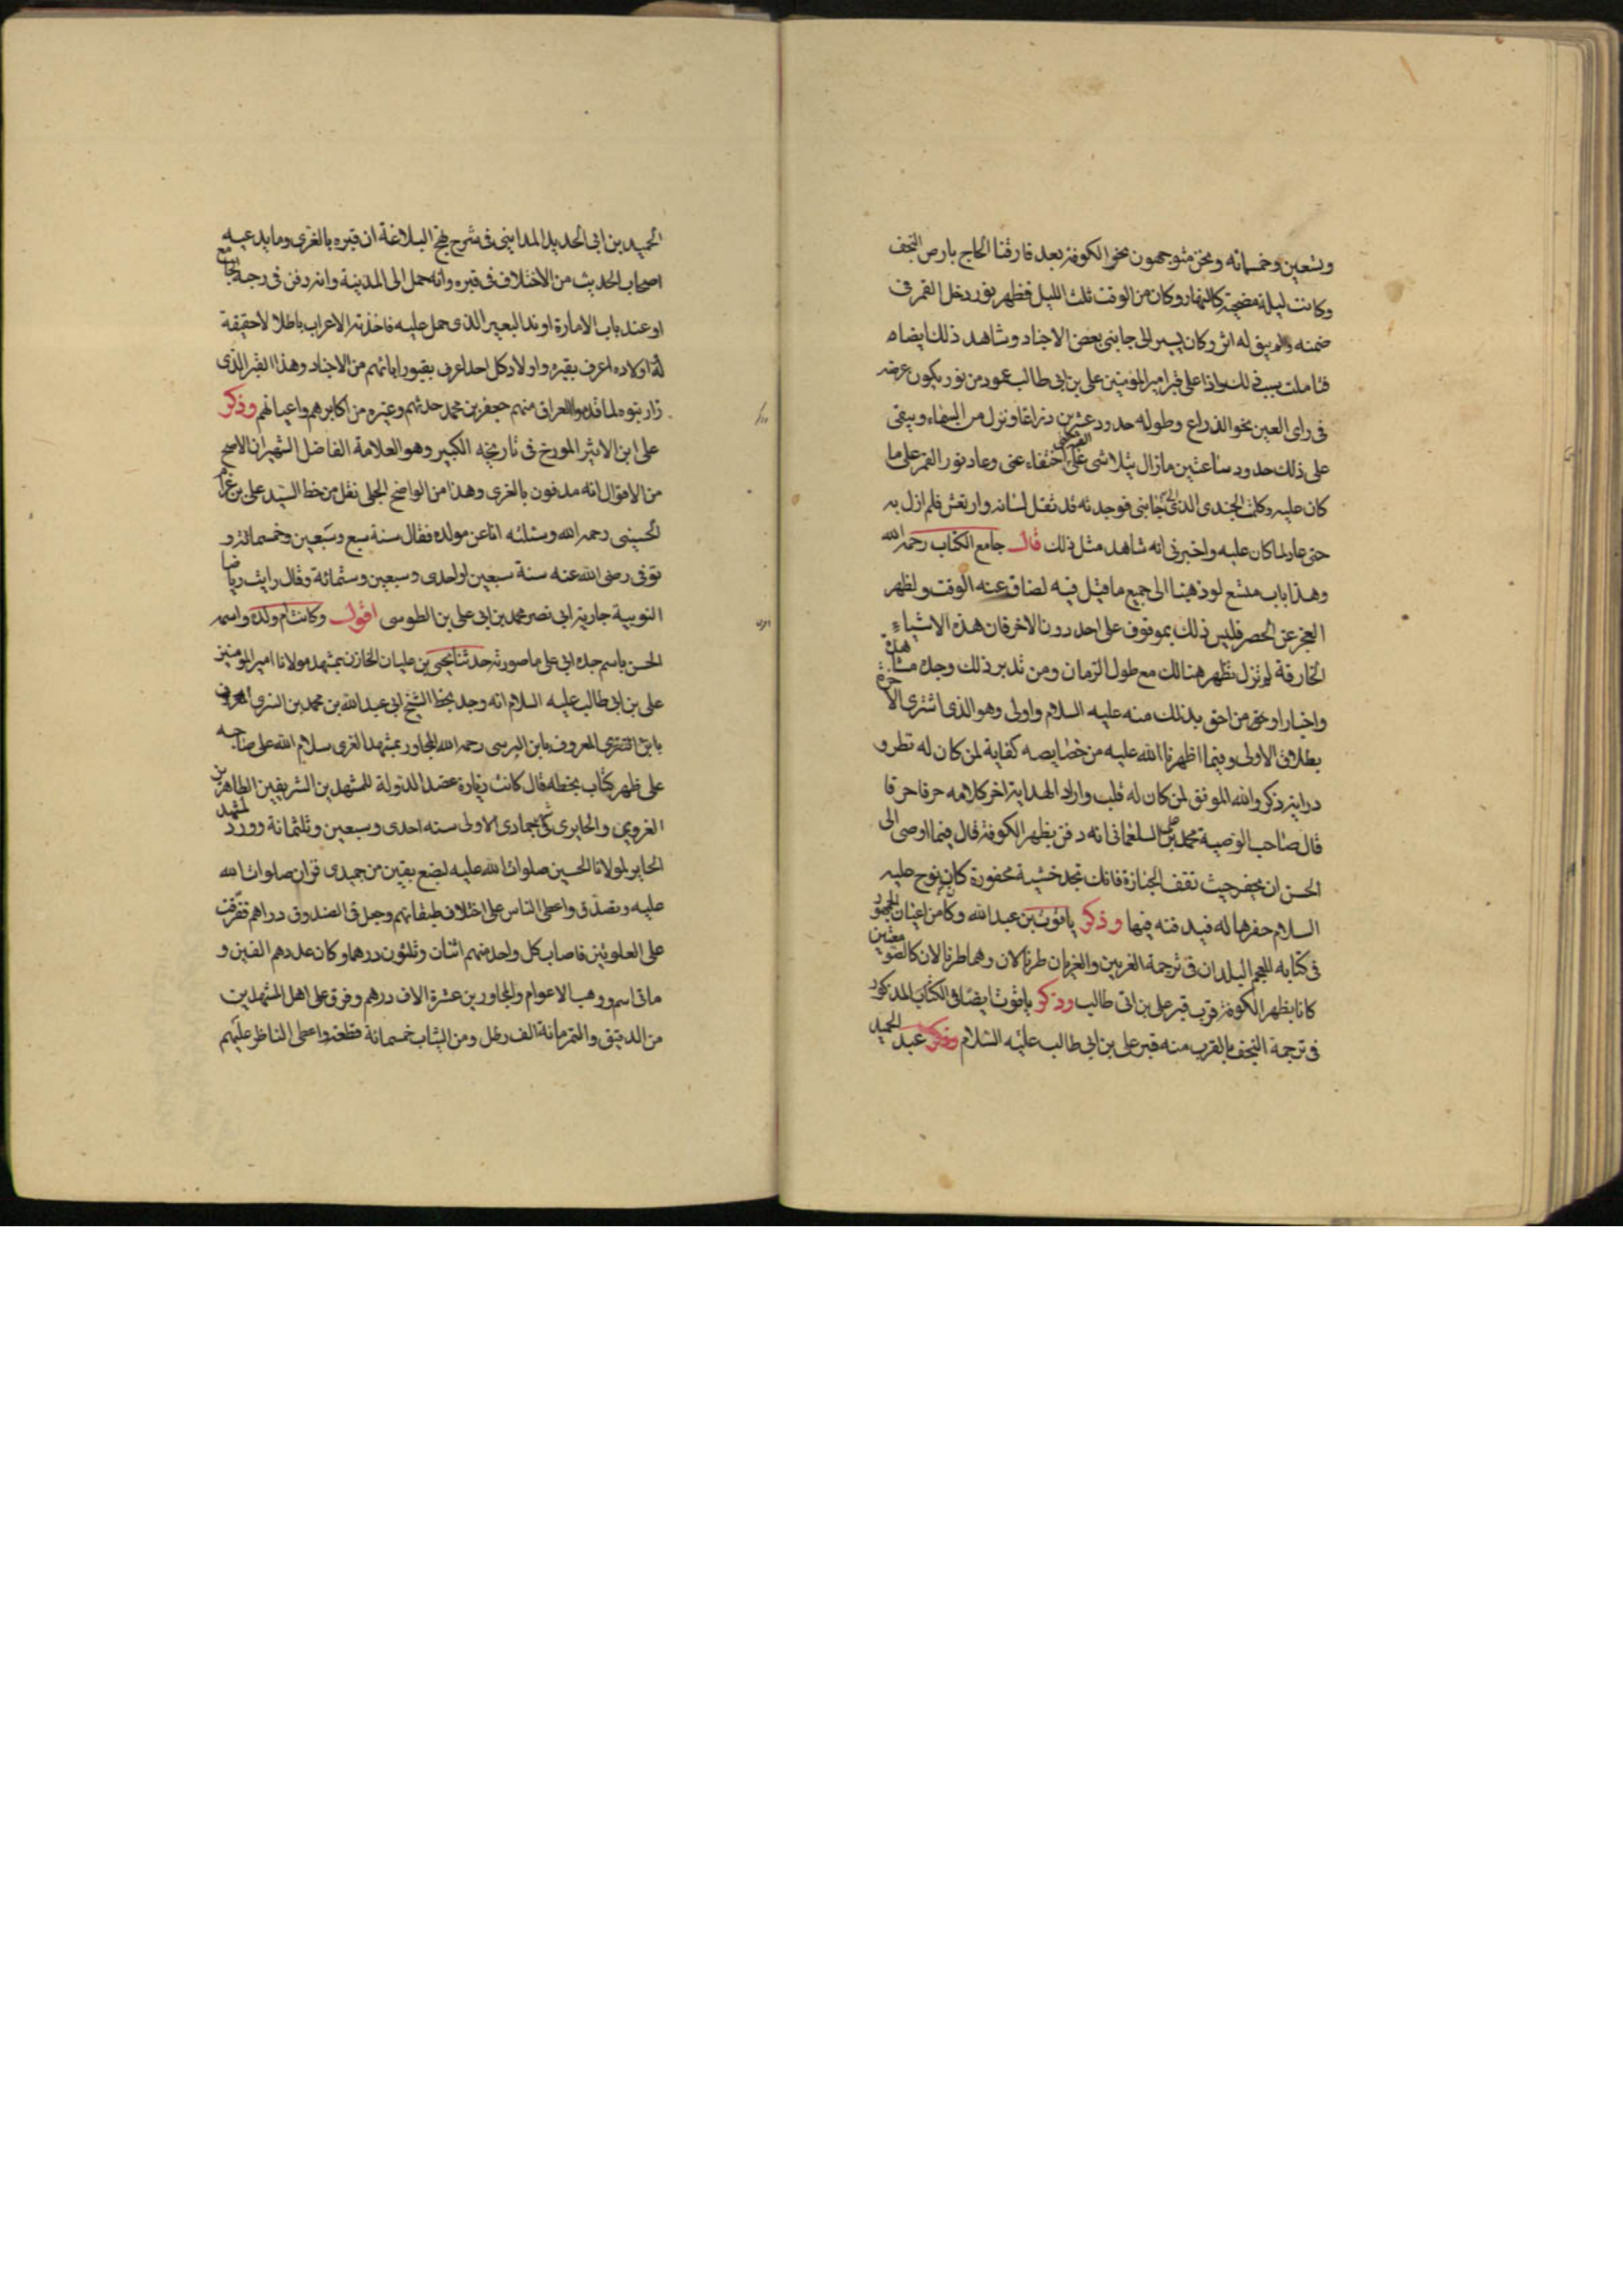 وتسعين وخمسمائه ونحن متوجهون نحو الكوفة بعد فارقنا الحاج بارض النجف
وكانت ليلة مضحية كالنهار وكان من الوقت ثلث الليل فظهر نور دخل القمر فى
ضمنه ولم يبق له اثر وكان يسير الى جانبى بعض الاجناد وشاهد ذلك ايضا
فتاملت سبب ذلك واذا على قبر امير المؤمنين على بن ابى طالب عمود من نور يكون عرضه
فى راى العين نحو الذراع وطوله حدود عشرين ذراعا ونزل من السماء وبقى
على ذلك حدود ساعتين مازال يتلاشى على القبر حتى اختفاء عنى وعاد نور القمر على ما
كان عليه وكلمت الجندى الذى الى جانبى فوجدته قد ثقل لسانه وارتعش فلم ازل به
حتى عاد لما كان عليه واخبرنى انه شاهد مثل ذلك قال جامع الكتاب رحمه الله
وهذا باب متسع لو ذهبنا الى جميع ما قيل فيه لضاق عنه الوقت ولظهر
العجز عن الحصر فليس ذلك بموقوف على احد دون الاخر فان هذه الاشياء
الخارقة لم تزل تظهر هنالك مع طول الزمان ومن تدبر ذلك وجده مشاهدة
واخبارا ومن احق بذلك منه عليه السلام واولى وهو الذى اشترى الاخرة
بطلاق الاولى وفيما اظهرنا الله عليه من خصايصه كفاية لمن كان له نظر و
دراية ذكر والله الموفق لمن كان له قلب واراد الهداية اخر كلامه حرفا حرفا
قال صاحب الوصية محمد بن على السلغمانى انه دفن بظهر الكوفة قال فيما اوصى الى
الحسن ان يحفر حيث تقف الجنازة فانك تجد خشبة محفورة كان نوح عليه
السلام حفرها له فيدفنه فيها وذكر ياقوت بن عبد الله وكان من اعيان الجمهور
فى كتابه المعجم البلدان فى ترجمة الغريين والغريان طربالان وهما طربالان كالصومعتين
كانا بظهر الكوفة قرب قبر على بن ابى طالب وذكر ياقوت ايضا فى الكتاب المذكور
فى ترجمة النجف بالقرب منه قبر على بن ابى طالب عليه السلام وذكر عبد الحميد
الحميد بن ابى الحديد المداينى فى شرح نهج البلاغة ان قبره بالغرى وما يدعيه
اصحاب الحديث من الاختلاف فى قبره وانه حمل الى المدينة وانه دفن فى رحبة الجامع
او عند باب الامارة او ند البعير الذى حمل عليه فاخذته الاعراب باطلا لا حقيقة
له اولاده اعرف بقبره واولاد كل احد اعرف بقبور ابائهم من الاجناد وهذا القبر الذى
زار بنوه لما قدموا العراق منهم جعفر بن محمد حدثهم وغيره من اكابرهم واعيانهم وذكر
على ابن الاثير المورخ فى تاريخه الكبير وهو العلامة الفاضل الشهير ان الاصح
من الاقوال انه مدفون بالغرى وهذا من الواضح الجلى نقل من خط السيد على بن عرام
الحسينى رحمه الله وسئلته انا عن مولده فقال سنة سبع وسبعين وخمسمائة و
توفى رضى الله عنه سنة سبعين او احدى وسبعين وستمائة وقال رايت رياضا
النوبية جارية ابى نصر محمد بن ابى على بن الطوسى اقول وكانت ام ولده واسمه
الحسن باسم جده ابى على ما صورته حدثنا يحيى بن عليان الخازن بمشهد مولانا امير المومنين
على بن ابى طالب عليه السلام انه وجد بخط الشيخ ابى عبد الله بن محمد بن السرى المعروف
المعروف بابن البرسى رحمه الله المجاور بمشهد الغرى سلام الله على صاحبه
على ظهر كتاب بخطه قال كانت زيارة عضد الدولة للمشهدين الشريفين الطاهرين
الغروى والحايرى فى جمادى الاولى سنه احدى وسبعين وثلثمائة وورد لمشهد
الحاير لمولانا الحسين صلوات الله عليه لبضع بقين من جميدى فزاره صلوات الله
عليه وتصدق واعطى الناس على اختلاف طبقاتهم وجعل فى الصندوق دراهم ففرقت
على العلويين فاصاب كل واحد منهم اثنان وثلثون درهما وكان عددهم الفين و
ماتى اسم ووهب الاعوام والمجاورين عشرة الاف درهم وفرق على اهل المشهدين
من الدقيق والتمر مائة الف رطل ومن الثياب خمسمائة قطعة واعطى الناظر عليهم